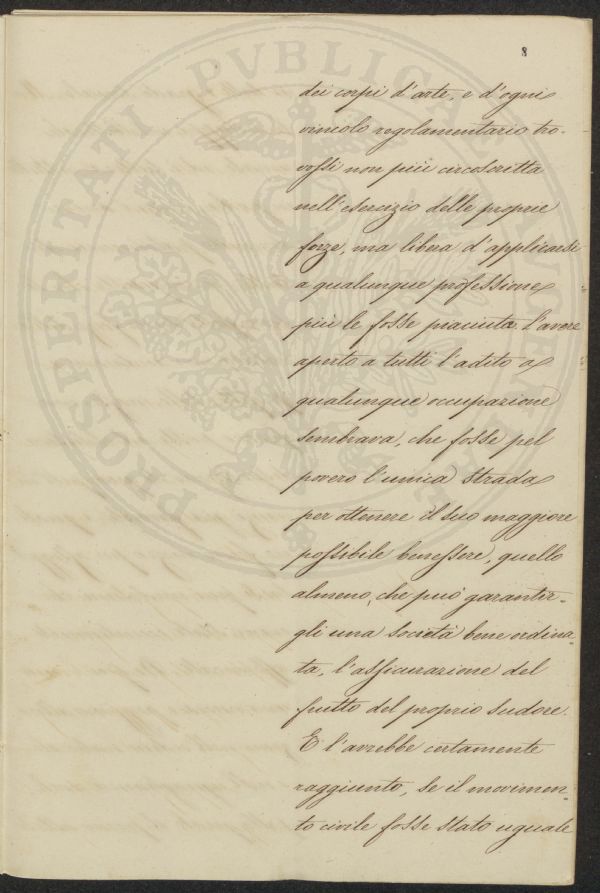 8
dei corpi d'arte, e d'ogni
vincolo regolamentario tro-
vossi non più circoscritta
nell'esercizio delle proprie
forze, ma libera d'applicarsi
a qualunque professione
più le fosse piaciuta. L'avere
aperto a tutti l'adito a
qualunque occupazione
sembrava, che fosse pel
povero l'unica strada
per ottenere il suo maggiore
possibile benessere, quello
almeno, che può garantir-
gli una società bene ordina
ta, l'assicurazione del
frutto del proprio sudore.
E l'avrebbe certamente
raggiunto, se il movimen
to civile fosse stato uguale
PROSPERITATI PVBLICAE AVGENDAE